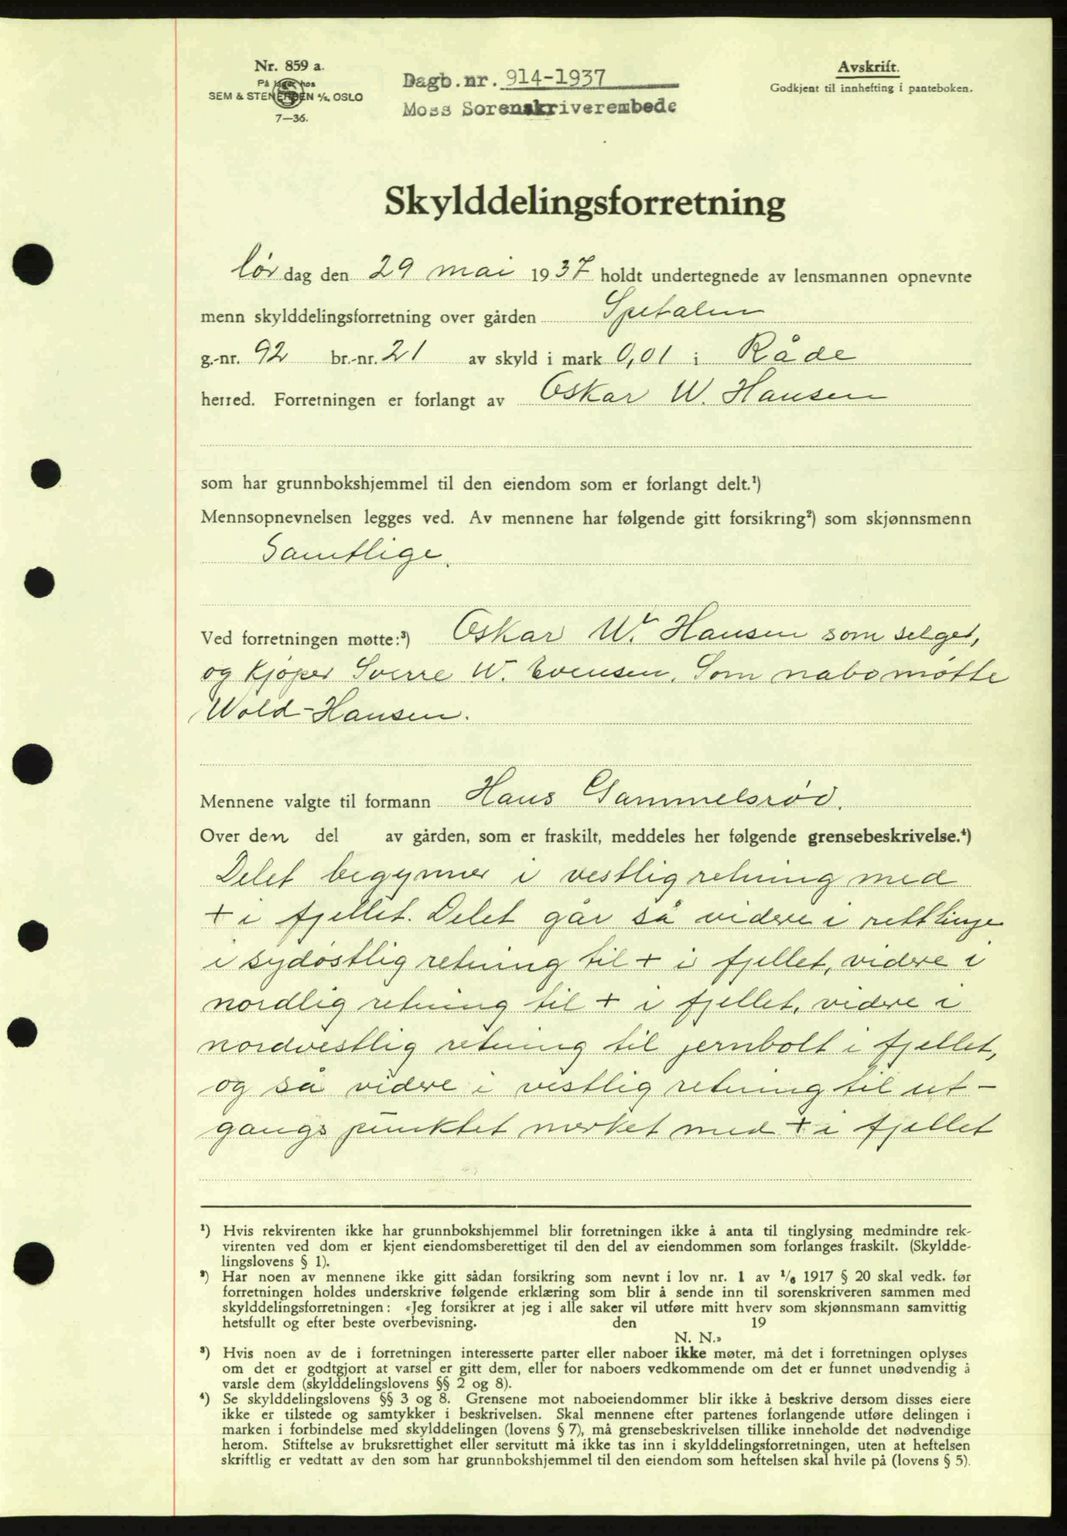 Nr. 859 a.
På lager hos
SEM & STENERSEN A/S, OSLO
7—36.
Dagb.nr. 914-1937
Moss Sorenskriverembede
Avskrift.
Godkjent til innhefting i panteboken.
Skylddelingsforretning
lør dag den 29 mai 1937 holdt undertegnede av lensmannen opnevnte
menn skylddelingsforretning over gården Spetalen
g.-nr. 92 br.-nr. 21 av skyld i mark 0,01 i Råde
herred. Forretningen er forlangt av Oskar W. Hansen
som har grunnbokshjemmel til den eiendom som er forlangt delt.¹)
Mennsopnevnelsen legges ved. Av mennene har følgende gitt forsikring²) som skjønnsmenn
Samtlige.
Ved forretningen møtte:³) Oskar W. Hansen som selger,
og kjøper Sverre W. Evensen. Som nabo møtte
Wold-Hansen.
Mennene valgte til formann Hans Gammelsrød.
Over den del av gården, som er fraskilt, meddeles her følgende grensebeskrivelse.⁴)
Delet begynner i vestlig retning med
+ i fjellet. Delet går så videre i rett linje
i sydøstlig retning til + i fjellet, videre i
nordlig retning til + i fjellet, videre i
nordvestlig retning til jernbolt i fjellet,
og så videre i vestlig retning til ut-
gangspunktet merket med + i fjellet
¹) Hvis rekvirenten ikke har grunnbokshjemmel blir forretningen ikke å anta til tinglysing medmindre rek-
virenten ved dom er kjent eiendomsberettiget til den del av eiendommen som forlanges fraskilt. (Skyldde-
lingslovens § 1).
²) Har noen av mennene ikke gitt sådan forsikring som nevnt i lov nr. 1 av 1/6 1917 § 20 skal vedk. før
forretningen holdes underskrive følgende erklæring som blir å sende inn til sorenskriveren sammen med
skylddelingsforretningen: «Jeg forsikrer at jeg i alle saker vil utføre mitt hverv som skjønnsmann samvittig
hetsfullt og efter beste overbevisning. den 19
N. N.»
³) Hvis noen av de i forretningen interesserte parter eller naboer ikke møter, må det i forretningen oplyses
om det er godtgjort at varsel er gitt dem, eller for naboers vedkommende om det er funnet unødvendig å
varsle dem (skylddelingslovens §§ 2 og 8).
⁴) Se skylddelingslovens §§ 3 og 8. Grensene mot naboeiendommer blir ikke å beskrive dersom disses eiere
ikke er tilstede og samtykker i beskrivelsen. Skal mennene efter partenes forlangende utføre delingen i
marken i forbindelse med skylddelingen (lovens § 7), må grensebeskrivelsen tillike inneholde det nødvendige
herom. Stiftelse av bruksrettighet eller servitutt må ikke tas inn i skylddelingsforretningen, uten at heftelsen
skriftlig er vedtatt av den som har grunnbokshjemmel til den eiendom som heftelsen skal hvile på (lovens § 5).